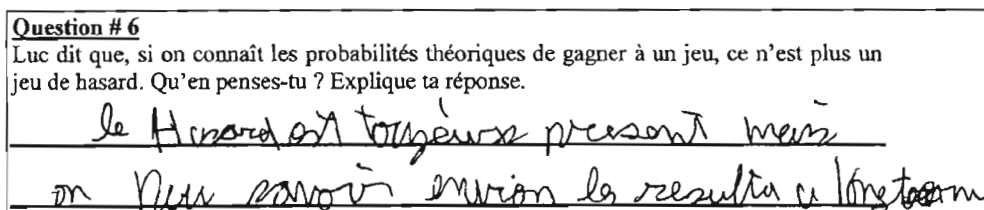 Question # 6
Luc dit que, si on connaît les probabilités théoriques de gagner à un jeu, ce n'est plus un
jeu de hasard. Qu'en penses-tu ? Explique ta réponse.
le Hasard est présent mais
on peu savoir envion les resulta a long